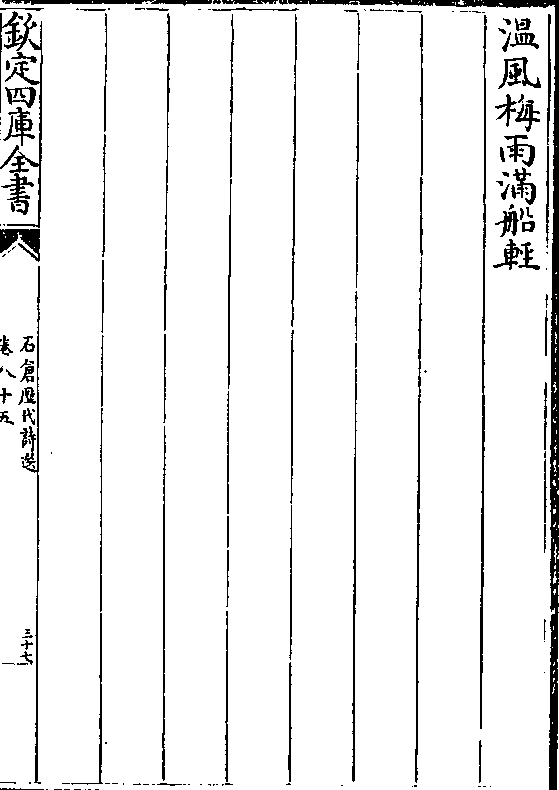 溫風梅雨滿船輕
欽定四庫全書
石倉歷代詩選
卷八十五
三十七